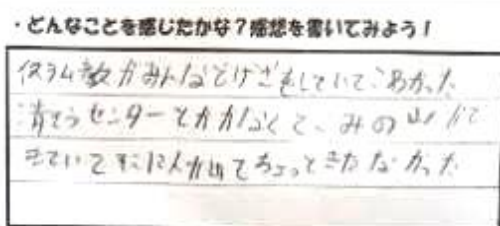 ・どんなことを感じたかな？感想を書いてみよう！
イスラム教がみんなどげざをしていてこわかった
清そうセンターとかがなくて、みの山がで
きていてすに人が出てちょっときたなかった